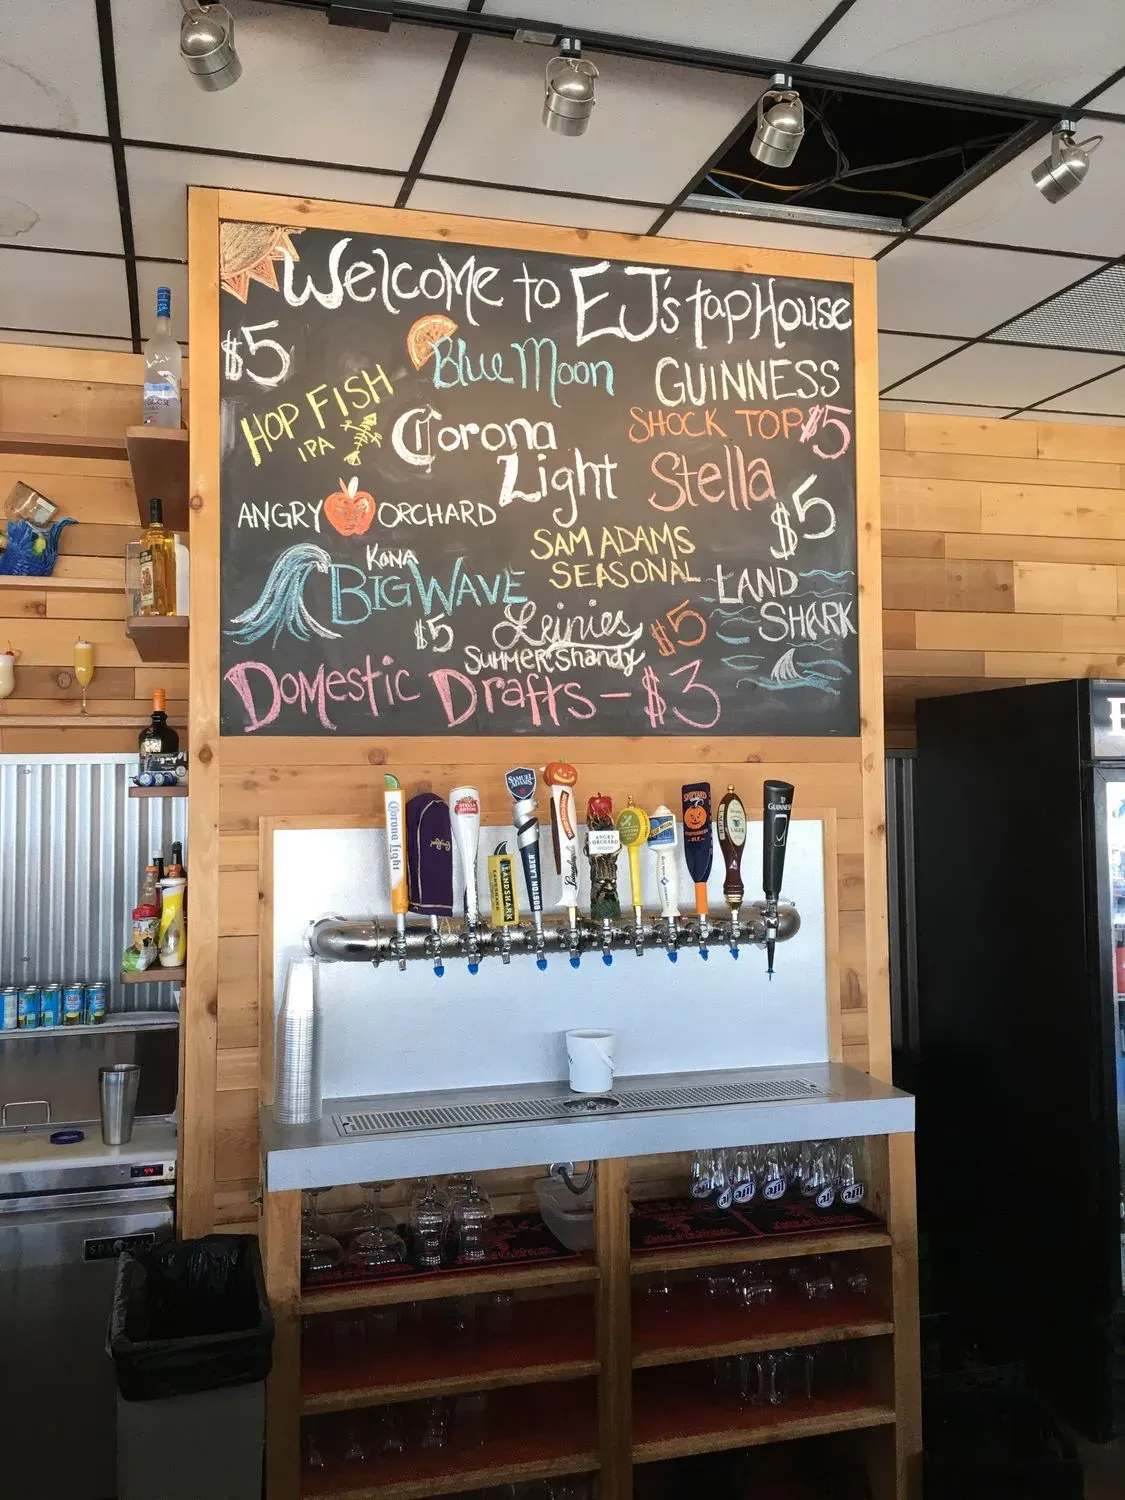 Welcome to EJ's Tap House
$5
Blue Moon
GUINNESS
HOP FISH
IPA
Corona
Light
SHOCK TOP $5
Stella
$5
ANGRY ORCHARD
SAM ADAMS
SEASONAL
KONA
BIG WAVE
$5
LAND
SHARK
Leinies
Summer Shandy
$5
Domestic Drafts - $3
Corona Light
STELLA
ARTOIS
LANDSHARK
SAMUEL
ADAMS
BOSTON LAGER
ANGRY
ORCHARD
BLUE MOON
SHIPYARD
LAGER
GUINNESS